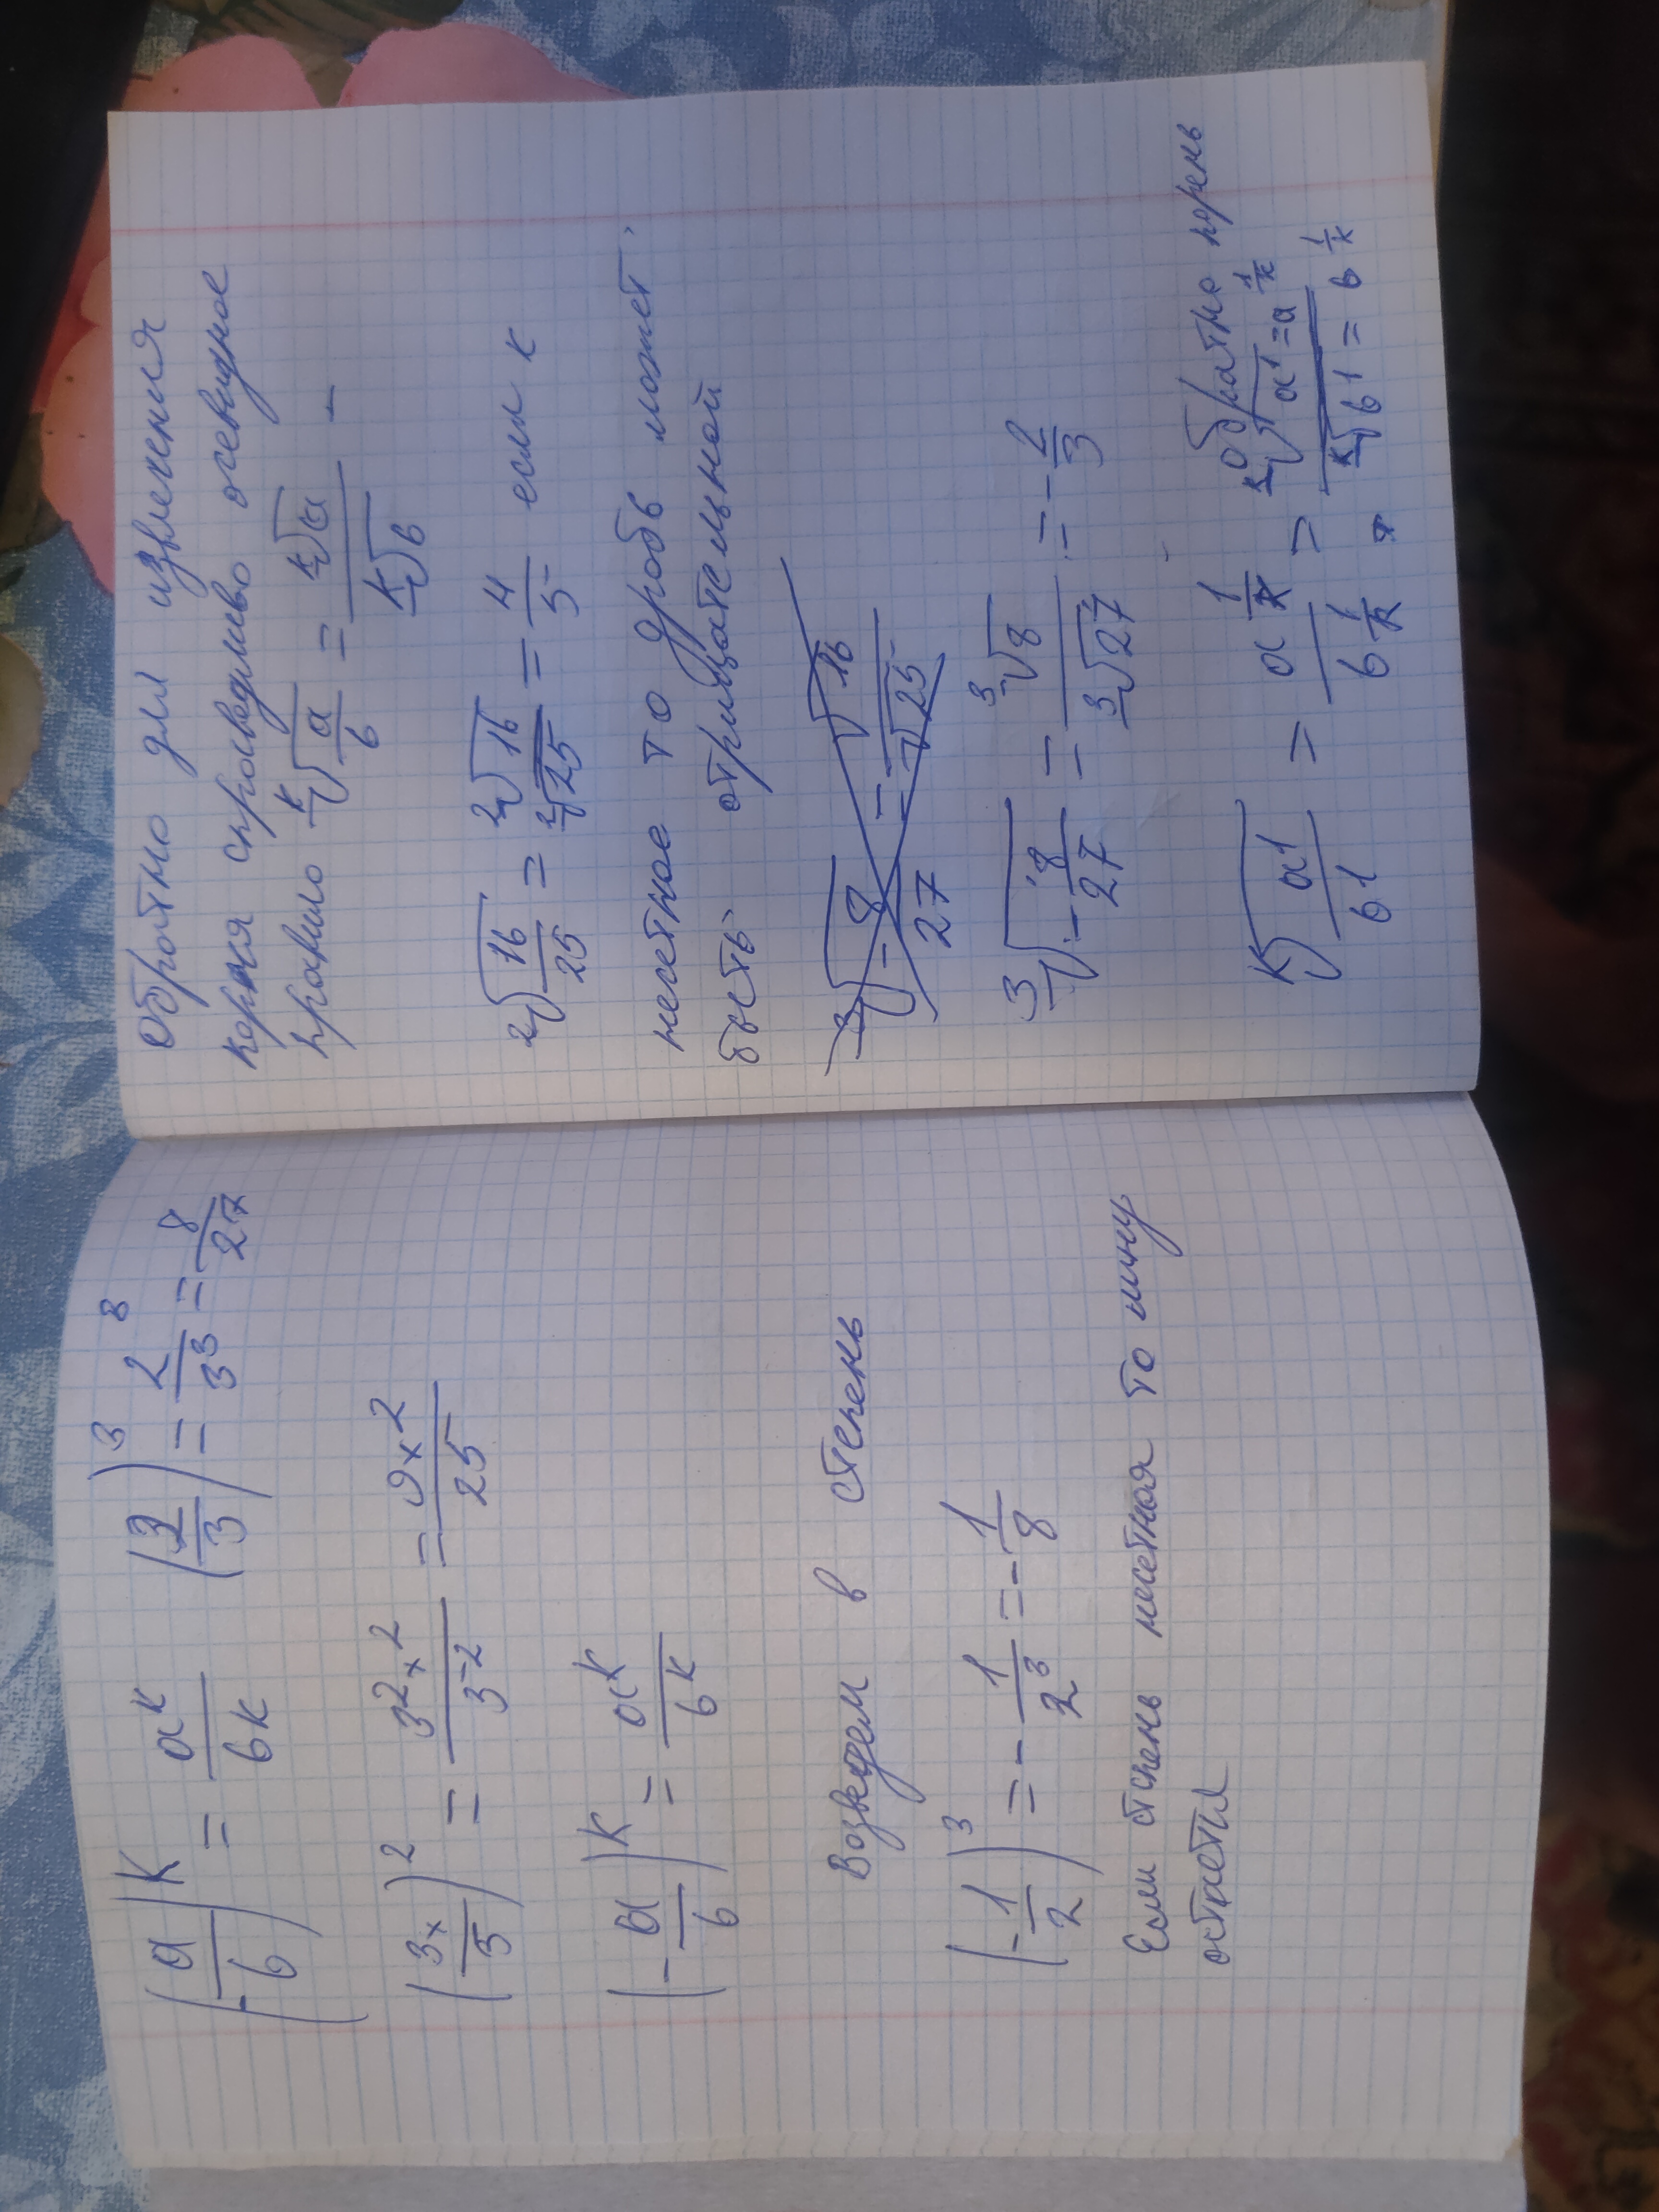 (a/b)^k = a^k/bk (2/3)^3 = 2^8/3^3 = 8/27
(3x/5)^2 = 3^2x^2/3^-2 = 9x^2/25
(-a/b)^k = a^k/b^k
Возведем в степень
(-1/2)^3 = -1/2^3 = -1/8
Если степень нечетная то мину
остается
Обратно для извлечения
корня справедливо очевидное
правило k√(a/b) = k√a/k√b –
2√(16/25) = 2√16/2√25 = 4/5 если к
нечетное то дробь может
быть отрицательной
3√(-8/27) = -√16/√25
3√(-8/27) = -3√8/3√27 = -2/3
Обратно корень
k√(a1/b1) = a^(1/k)/b^(1/k) = k√a1=a^(1/k)/k√b1=b^(1/k)